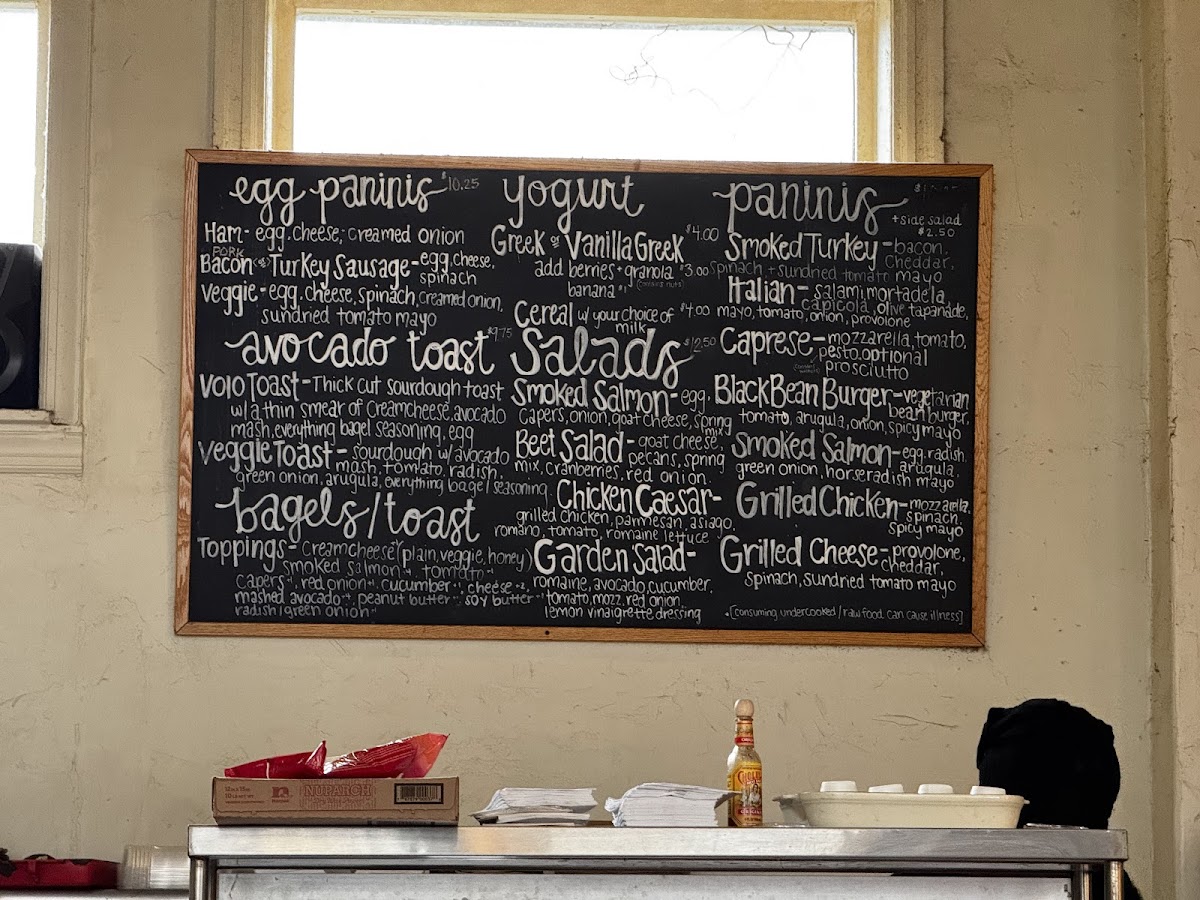 egg paninis $10.25
Ham - egg, cheese, creamed onion
PORK
Bacon or Turkey Sausage - egg, cheese,
spinach
Veggie - egg, cheese, spinach, creamed onion,
sundried tomato mayo
avocado toast $9.75
Volo Toast - Thick cut sourdough toast
w/ a thin smear of creamcheese, avocado
mash, everything bagel seasoning, egg
Veggie Toast - sourdough w/ avocado
mash, tomato, radish,
green onion, arugula, everything bagel seasoning
bagels/toast
Toppings - creamcheese (plain, veggie, honey)
smoked salmon, tomato
capers, red onion, cucumber, cheese,
mashed avocado, peanut butter, soy butter
radish/green onion
yogurt
Greek or Vanilla Greek $4.00
add berries + granola $3.00
(contains nuts)
banana $1
Cereal w/ your choice of $4.00
milk
Salads $12.50
Smoked Salmon - egg,
capers, onion, goat cheese, spring
mix
Beet Salad - goat cheese,
pecans, spring
mix, cranberries, red onion
Chicken Caesar -
grilled chicken, parmesan, asiago,
romano, tomato, romaine lettuce
Garden Salad -
romaine, avocado, cucumber,
tomato, mozz, red onion,
lemon vinaigrette dressing
paninis
+ side salad
$2.50
Smoked Turkey - bacon,
cheddar,
spinach + sundried tomato mayo
Italian - salami, mortadela,
capicola, olive tapanade,
mayo, tomato, onion, provolone
Caprese - mozzarella, tomato,
pesto, optional
prosciutto
Black Bean Burger - vegetarian
bean burger,
tomato, arugula, onion, spicy mayo
Smoked Salmon - egg, radish,
arugula,
green onion, horseradish mayo
Grilled Chicken - mozzarella,
spinach,
spicy mayo
Grilled Cheese - provolone,
cheddar,
spinach, sundried tomato mayo
*[consuming undercooked / raw food can cause illness]
NUPARCH
CHOLULA